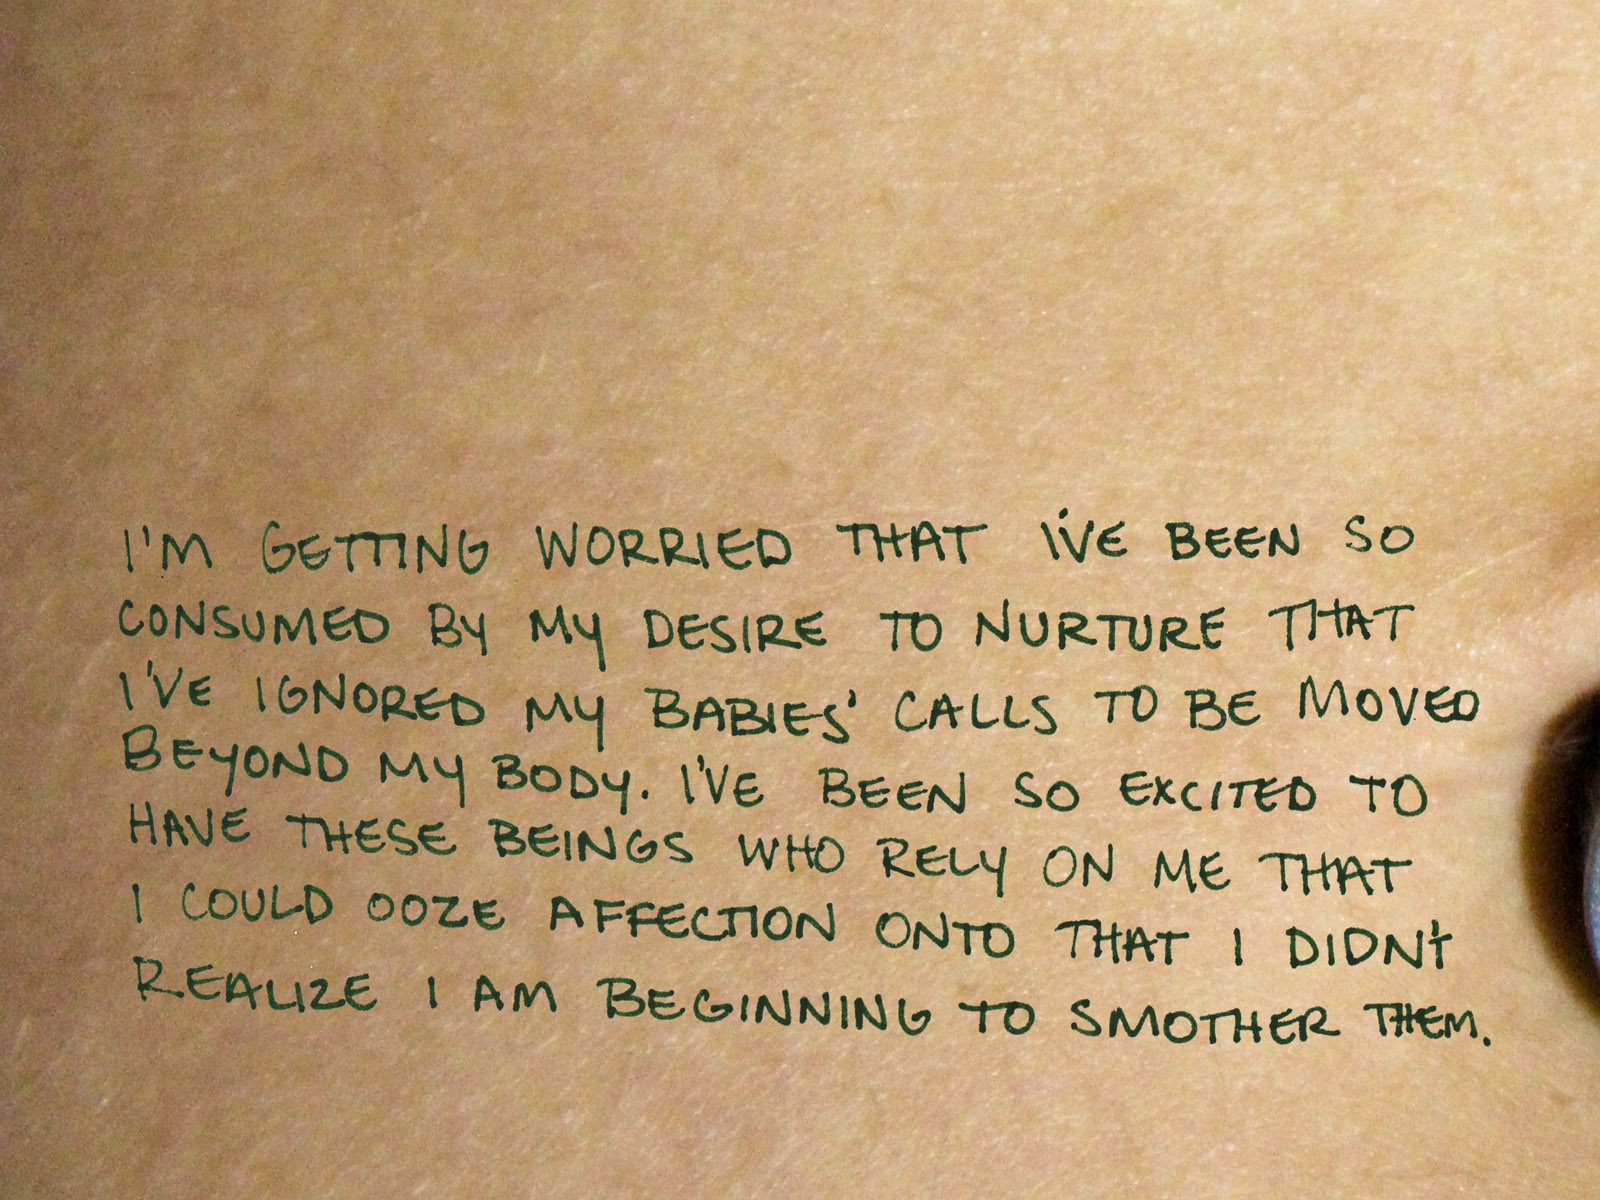 I'M GETTING WORRIED THAT I'VE BEEN SO
CONSUMED BY MY DESIRE TO NURTURE THAT
I'VE IGNORED MY BABIES' CALLS TO BE MOVED
BEYOND MY BODY. I'VE BEEN SO EXCITED TO
HAVE THESE BEINGS WHO RELY ON ME THAT
I COULD OOZE AFFECTION ONTO THAT I DIDN'T
REALIZE I AM BEGINNING TO SMOTHER THEM.